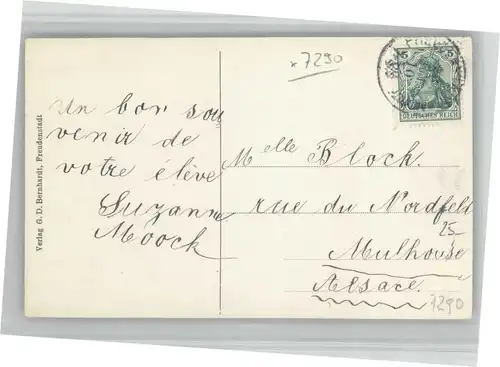 x 7290
5 5
DEUTSCHES REICH
Un bon sou
venir de
votre élève
Suzanne
Moock
Melle Bloch.
rue du Nordfeld
25
Mulhouse
Alsace.
7290
Verlag G. D. Bernhardt, Freudenstadt